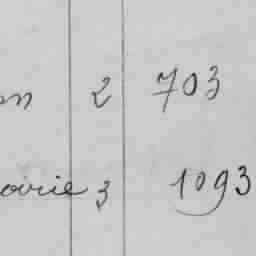 on 2 703
oirie 3 1093